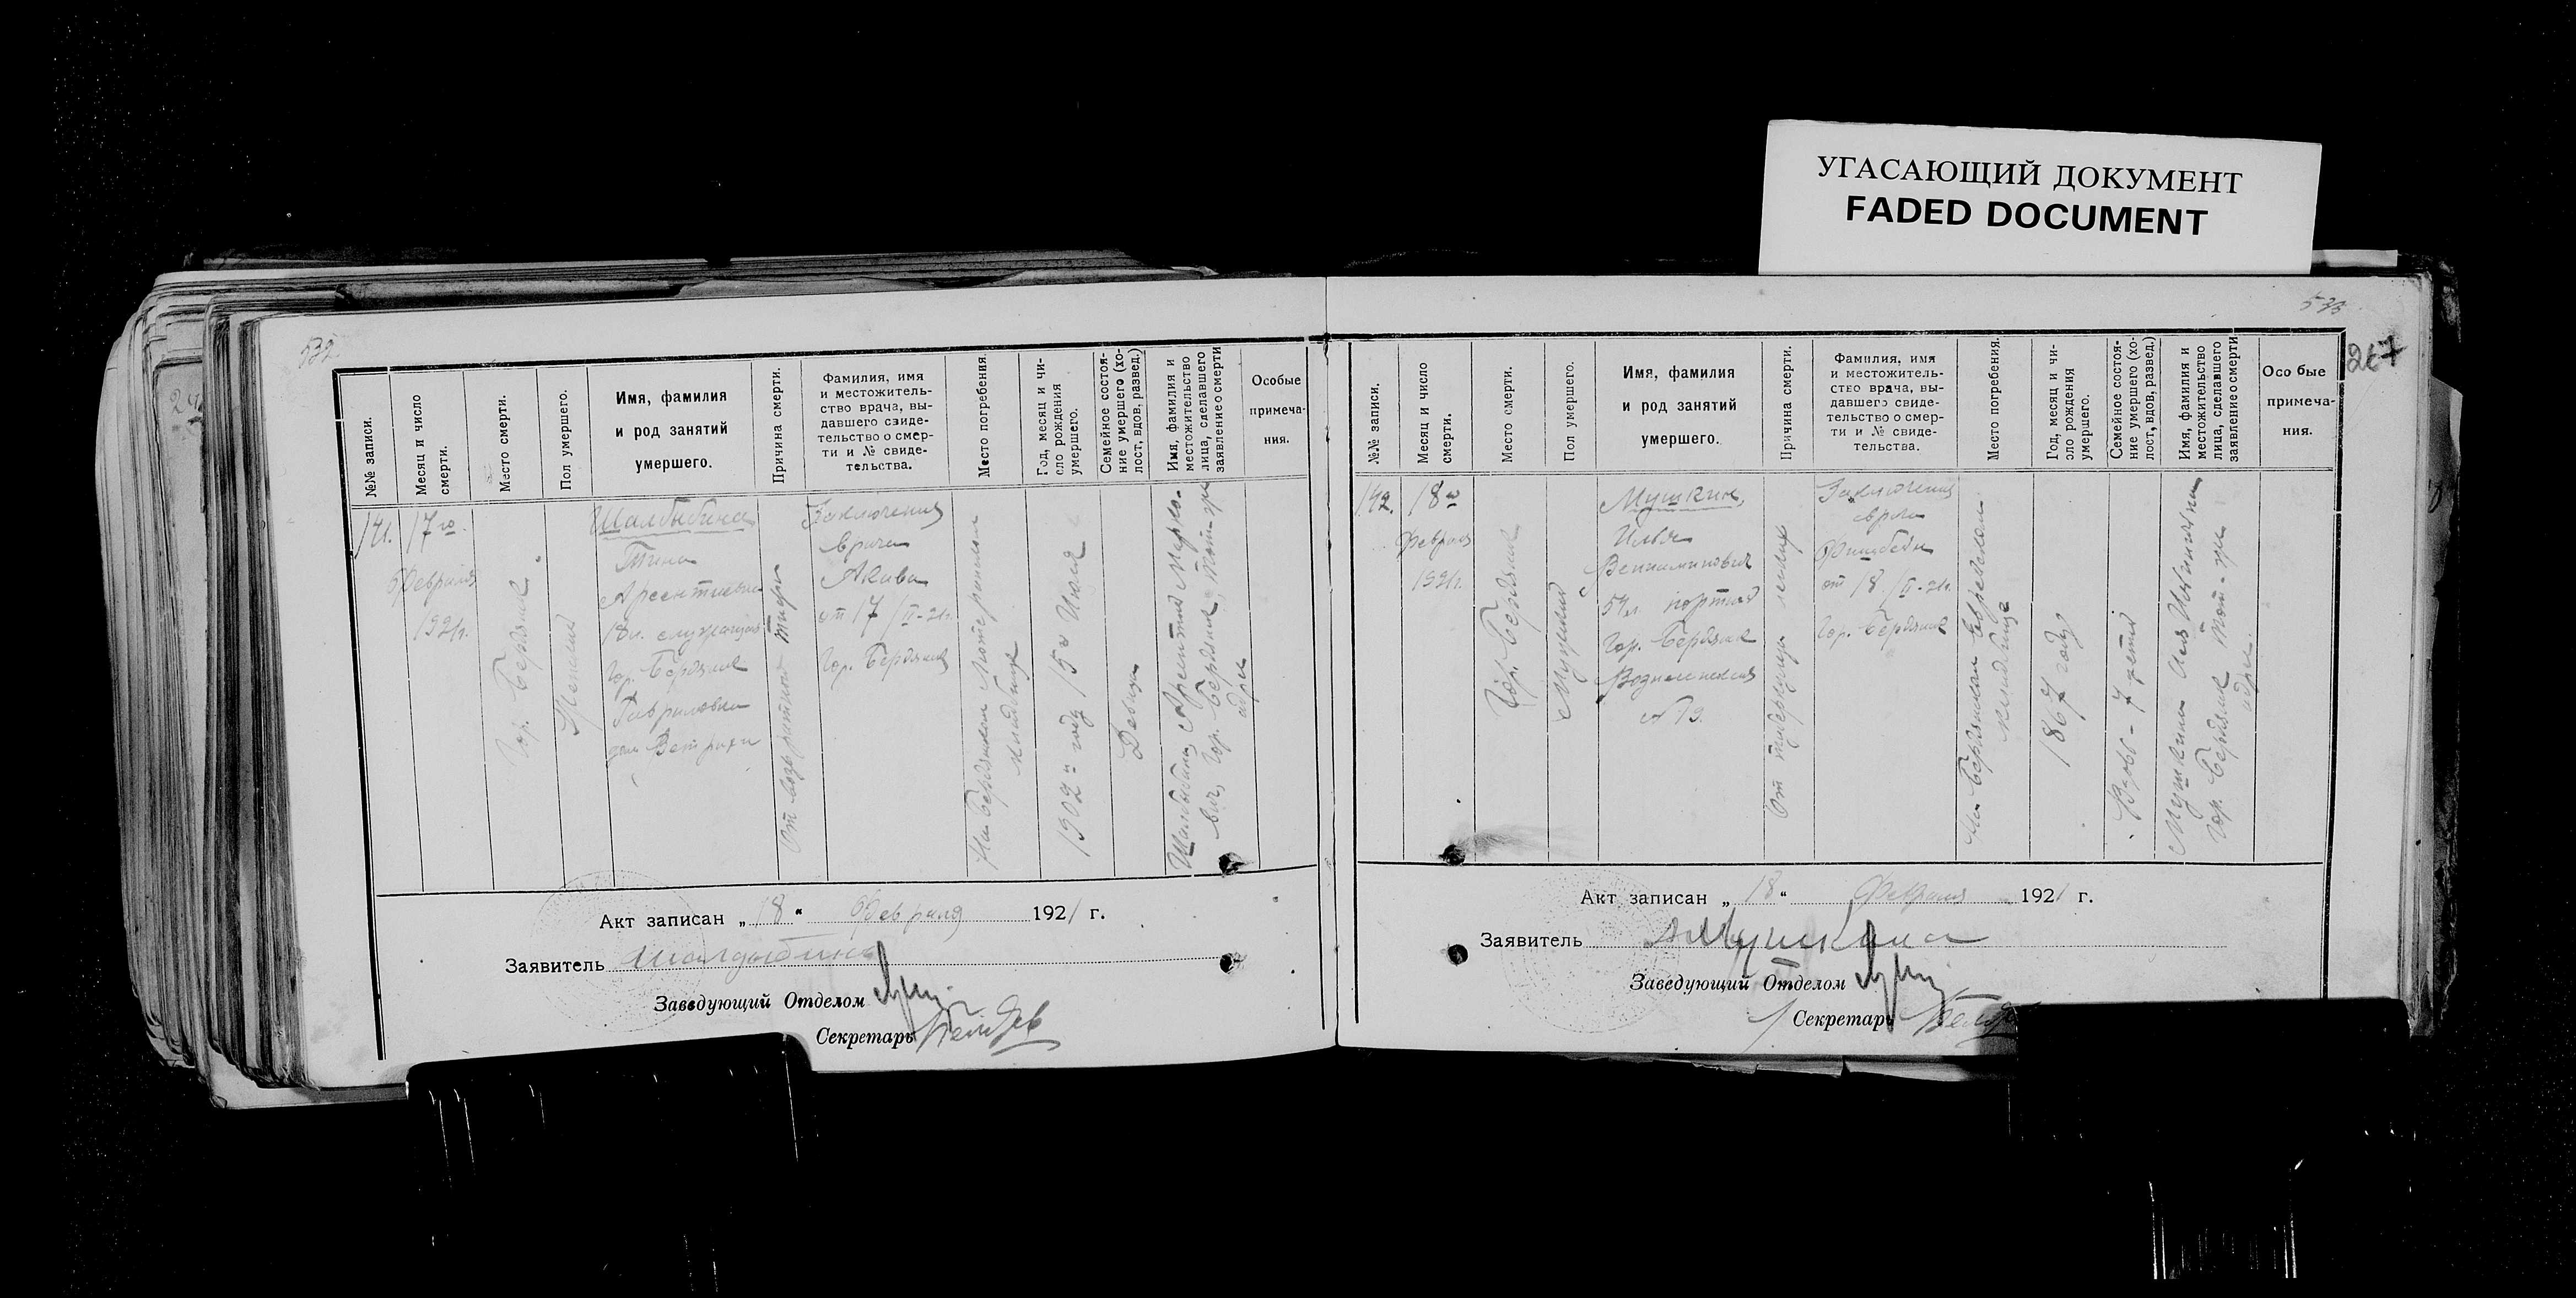 УГАСАЮЩИЙ ДОКУМЕНТ
FADED DOCUMENT
532
№№ записи.
Месяц и число
смерти.
Место смерти.
Пол умершего.
Имя, фамилия
и род занятий
умершего.
Причина смерти.
Фамилия, имя
и местожитель-
ство врача, вы-
давшего свиде-
тельство о смер-
ти и № свиде-
тельства.
Место погребения.
Год, месяц и чи-
сло рождения
умершего.
Семейное состоя-
ние умершего (хо-
лост, вдов, развед.)
Имя, фамилия и
местожительство
лица, сделавшего
заявление о смерти
Особые
примеча-
ния.
141.
17го
Февраля
1921г.
Гор. Бердянск
Женский
Шалбыбина
Арсентиевна
18л.
Гор. Бердянск
дом
От возвратного тифа
Заключения
врача
Акива
от 17/II-21г.
Гор. Бердянск
На Бердянском Лютеранском
кладбище
1902го году 15го Июля
Девица
Шалбыбин Арсентий Марко-
вич, Гор. Бердянск, той-же
адрес
Акт записан „18“ Февраля 1921 г.
Заявитель
Заведующий Отделом
Секретарь
533
267
№№ записи.
Месяц и число
смерти.
Место смерти.
Пол умершего.
Имя, фамилия
и род занятий
умершего.
Причина смерти.
Фамилия, имя
и местожитель-
ство врача, вы-
давшего свиде-
тельство о смер-
ти и № свиде-
тельства.
Место погребения.
Год, месяц и чи-
зло рождения
умершего.
Семейное состоя-
ние умершего (хо-
лост, вдов, развед.)
Имя, фамилия и
местожительство
лица, сделавшего
заявление о смерти
Осо бые
примеча-
ния.
142.
18го
Февраля
1921г.
Гор. Бердянск
Мужской
Мушкин,
Илья
Вениаминович
54л портной
Гор. Бердянск
Вознесенская
№ 79.
От туберкулеза легких
Заключения
врача
Фишбейн
от 18/II-21г.
Гор. Бердянск
На Бердянском Еврейском
кладбище
1867 году
Вдов - 7 детей
Мушкина
Гор. Бердянск той-же
адрес.
Акт записан „18“ Февраля 1921 г.
Заявитель АМушкина
Заведующий Отделом
Секретарь